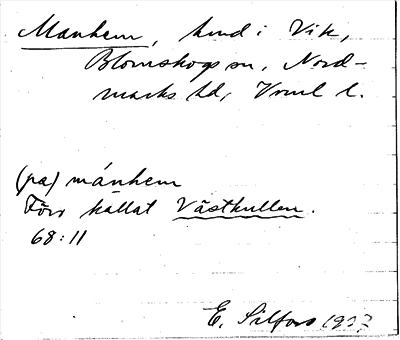 Manhem, hmd i Vik,
Blomskogs sn, Nord-
marks hd, Vrml l.
(pa) mánhem
Förr kallat Västkullen.
68:11
E.